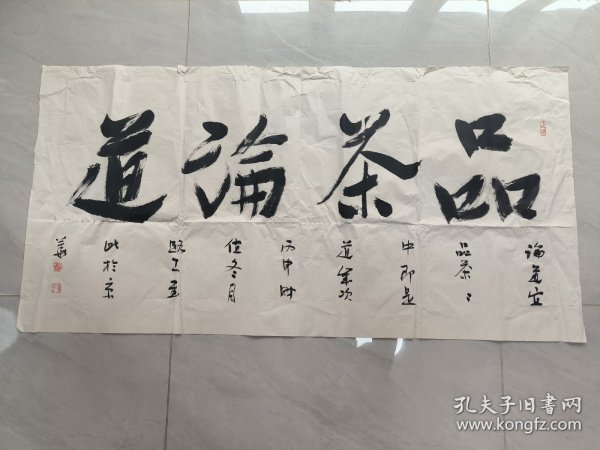 品茶論道
論道宜
品茶〻
中即是
道歲次
丙申時
值冬月
於京
孔夫子旧书网
www.kongfz.com